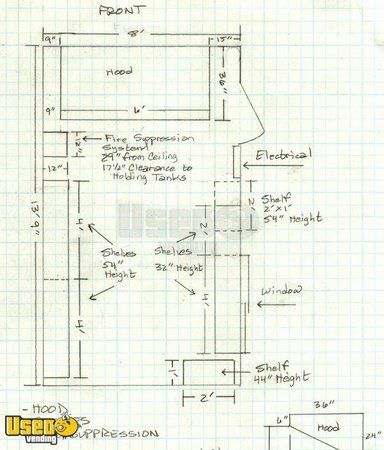 FRONT
8'
9" 15"
Hood
36"
9" 6'
Fire Suppression
System
29" from Ceiling
17½" Clearance to
Holding Tanks
12"
12"
Electrical
13'9"
4'
Shelf
2'x1'
54" Height
2'
2'
Shelves
54"
Height
Shelves
32" Height
4'
4'
Window
1'
Shelf
44" Height
2'
- HOOD
SUPPRESSION
USED
Vending
36"
6"
Hood
24"